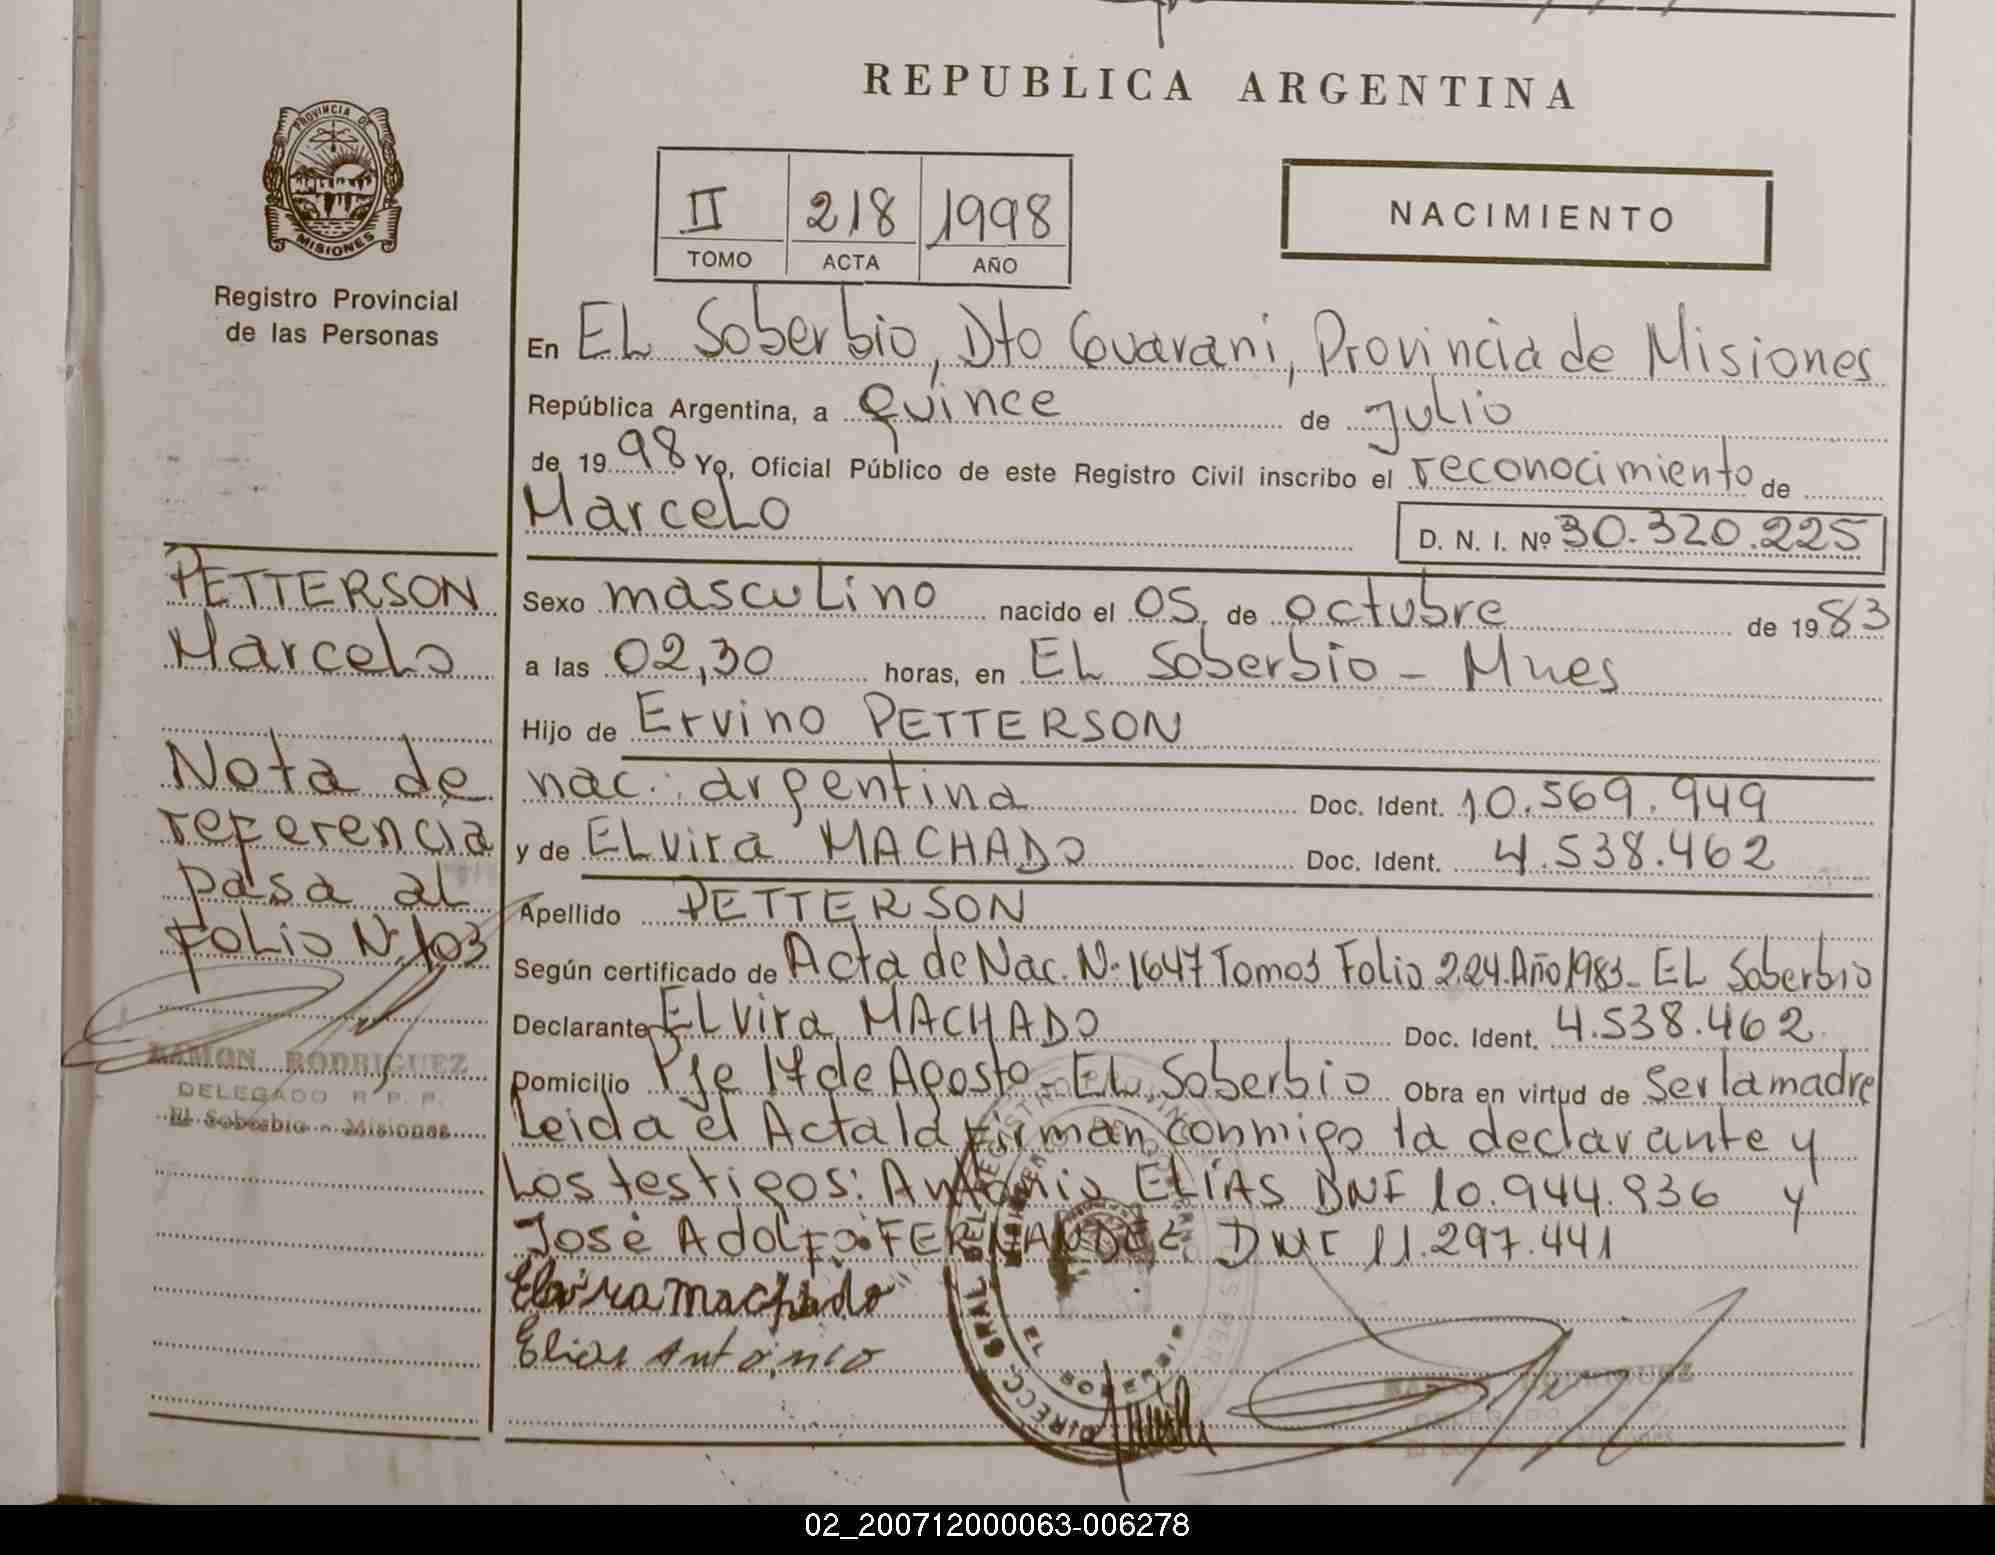 REPUBLICA ARGENTINA
PROVINCIA DE
MISIONES
Registro Provincial
de las Personas
II 218 1998
TOMO ACTA AÑO
NACIMIENTO
En EL Soberbio, Dto Guarani, Provincia de Misiones
República Argentina, a Quince de julio
de 1998 Yo, Oficial Público de este Registro Civil inscribo el reconocimiento de
Marcelo
D. N. I. Nº 30.320.225
PETTERSON
Marcelo
Nota de
referencia
pasa al
Folio N. 103
RAMON RODRIGUEZ
DELEGADO R. P. P.
El Soberbio - Misiones
Sexo masculino nacido el 05 de octubre de 1983
a las 02,30 horas, en EL Soberbio - Mnes
Hijo de Ervino PETTERSON
nac. argentina Doc. Ident. 10.569.949
y de ELvira MACHADO Doc. Ident. 4.538.462
Apellido PETTERSON
Según certificado de Acta de Nac. N. 1647 Tomo 3 Folio 224. Año 1983 - EL Soberbio
Declarante ELvira MACHADO Doc. Ident. 4.538.462
Domicilio Pje 17 de Agosto - EL Soberbio Obra en virtud de Ser la madre
Leida el Acta la firman conmigo la declarante y
Los testigos: Antonio ELIAS DNI 10.944.936 y
José Adolfo FERNANDEZ DNI 11.297.441
Elvira machado
Elias Antonio
RAMON RODRIGUEZ
DELEGADO R. P. P.
02_200712000063-006278